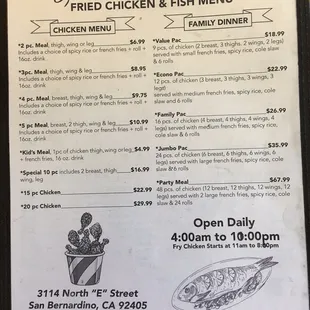 FRIED CHICKEN & FISH MENU
CHICKEN MENU
*2 pc. Meal, thigh, wing or leg $6.99
Includes a choice of spicy rice or french fries + roll +
16oz. drink
*3pc. Meal, thigh, wing or leg $8.95
Includes a choice of spicy rice or french fries + roll +
16oz. drink
*4 pc. Meal, breast, thigh, wing or leg $9.75
Includes a choice of spicy rice or french fries + roll +
16oz. drink
*5 pc Meal, 2 breast, thigh, wing & leg $10.99
Includes a choice of spicy rice or french fries + roll +
16oz. drink
*Kid's Meal, 1pc of chicken thigh, wing or leg $4.99
+ french fries, 16 oz. drink
*Special 10 pc includes 2 breast, thigh, $16.99
wing, leg
*15 pc Chicken $22.99
*20 pc Chicken $29.99
FAMILY DINNER
*Value Pac $18.99
9 pcs. of chicken (2 breast, 3 thighs, 2 wings, 2 legs)
served with small french fries, spicy rice, cole slaw
& 6 rolls
*Econo Pac $22.99
12 pc. of chicken (3 breast, 3 thighs, 3 wings, 3
legs) served with medium french fries, spicy rice, cole
slaw and 6 rolls
*Family Pac $26.99
16 pcs. of chicken (4 breast, 4 thighs, 4 wings, 4
legs) served with medium french fries, spicy rice,
cole slaw & 6 rolls
*Jumbo Pac $35.99
24 pcs. of chicken (6 breast, 6 thighs, 6 wings, 6
legs) served with large french fries, spicy rice, cole
slaw & 6 rolls
*Party Meal $67.99
48 pcs. of chicken (12 breast, 12 thighs, 12 wings, 12
legs) served with 2 large french fries, spicy rice, cole
slaw & 24 rolls
Open Daily
4:00am to 10:00pm
Fry Chicken Starts at 11am to 8:00pm
3114 North "E" Street
San Bernardino, CA 92405